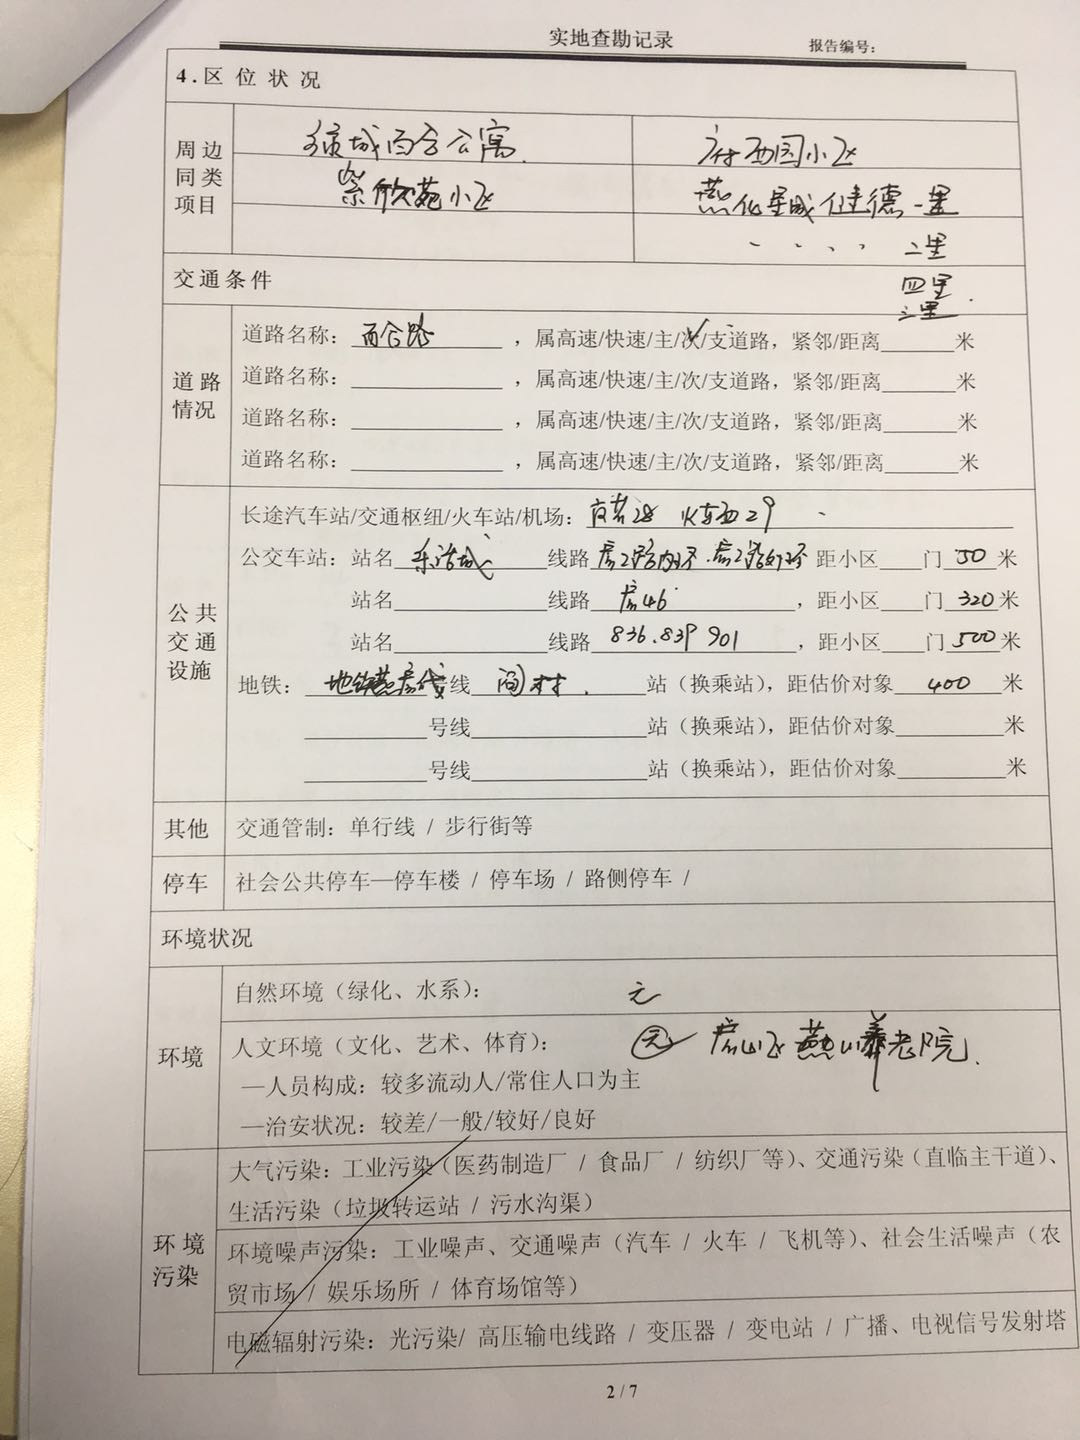 实地查勘记录
报告编号：
4.区位状况
周边同类项目
绿城百合公寓 府西园小区
紫欣苑小区 燕化星城健德一里
、、、、二里
四里
三里
交通条件
道路情况
道路名称：百合路，属高速/快速/主/次/支道路，紧邻/距离____米
道路名称：________，属高速/快速/主/次/支道路，紧邻/距离____米
道路名称：________，属高速/快速/主/次/支道路，紧邻/距离____米
道路名称：________，属高速/快速/主/次/支道路，紧邻/距离____米
公共交通设施
长途汽车站/交通枢纽/火车站/机场：
公交车站：站名 乐活城 线路 房2路内环.房2路外环 距小区____门 50 米
站名________线路 房46，距小区____门 320 米
站名________线路 836.839 901，距小区____门 500 米
地铁：地铁燕房线 号线 阎村 站（换乘站），距估价对象 400 米
________号线________站（换乘站），距估价对象________米
________号线________站（换乘站），距估价对象________米
其他 交通管制：单行线 / 步行街等
停车 社会公共停车—停车楼 / 停车场 / 路侧停车 /
环境状况
环境
自然环境（绿化、水系）：无
人文环境（文化、艺术、体育）：房山区燕山养老院
—人员构成：较多流动人/常住人口为主
—治安状况：较差/一般/较好/良好
环境污染
大气污染：工业污染（医药制造厂 / 食品厂 / 纺织厂等）、交通污染（直临主干道）、
生活污染（垃圾转运站 / 污水沟渠）
环境噪声污染：工业噪声、交通噪声（汽车 / 火车 / 飞机等）、社会生活噪声（农
贸市场 / 娱乐场所 / 体育场馆等）
电磁辐射污染：光污染/ 高压输电线路 / 变压器 / 变电站 / 广播、电视信号发射塔
2 / 7